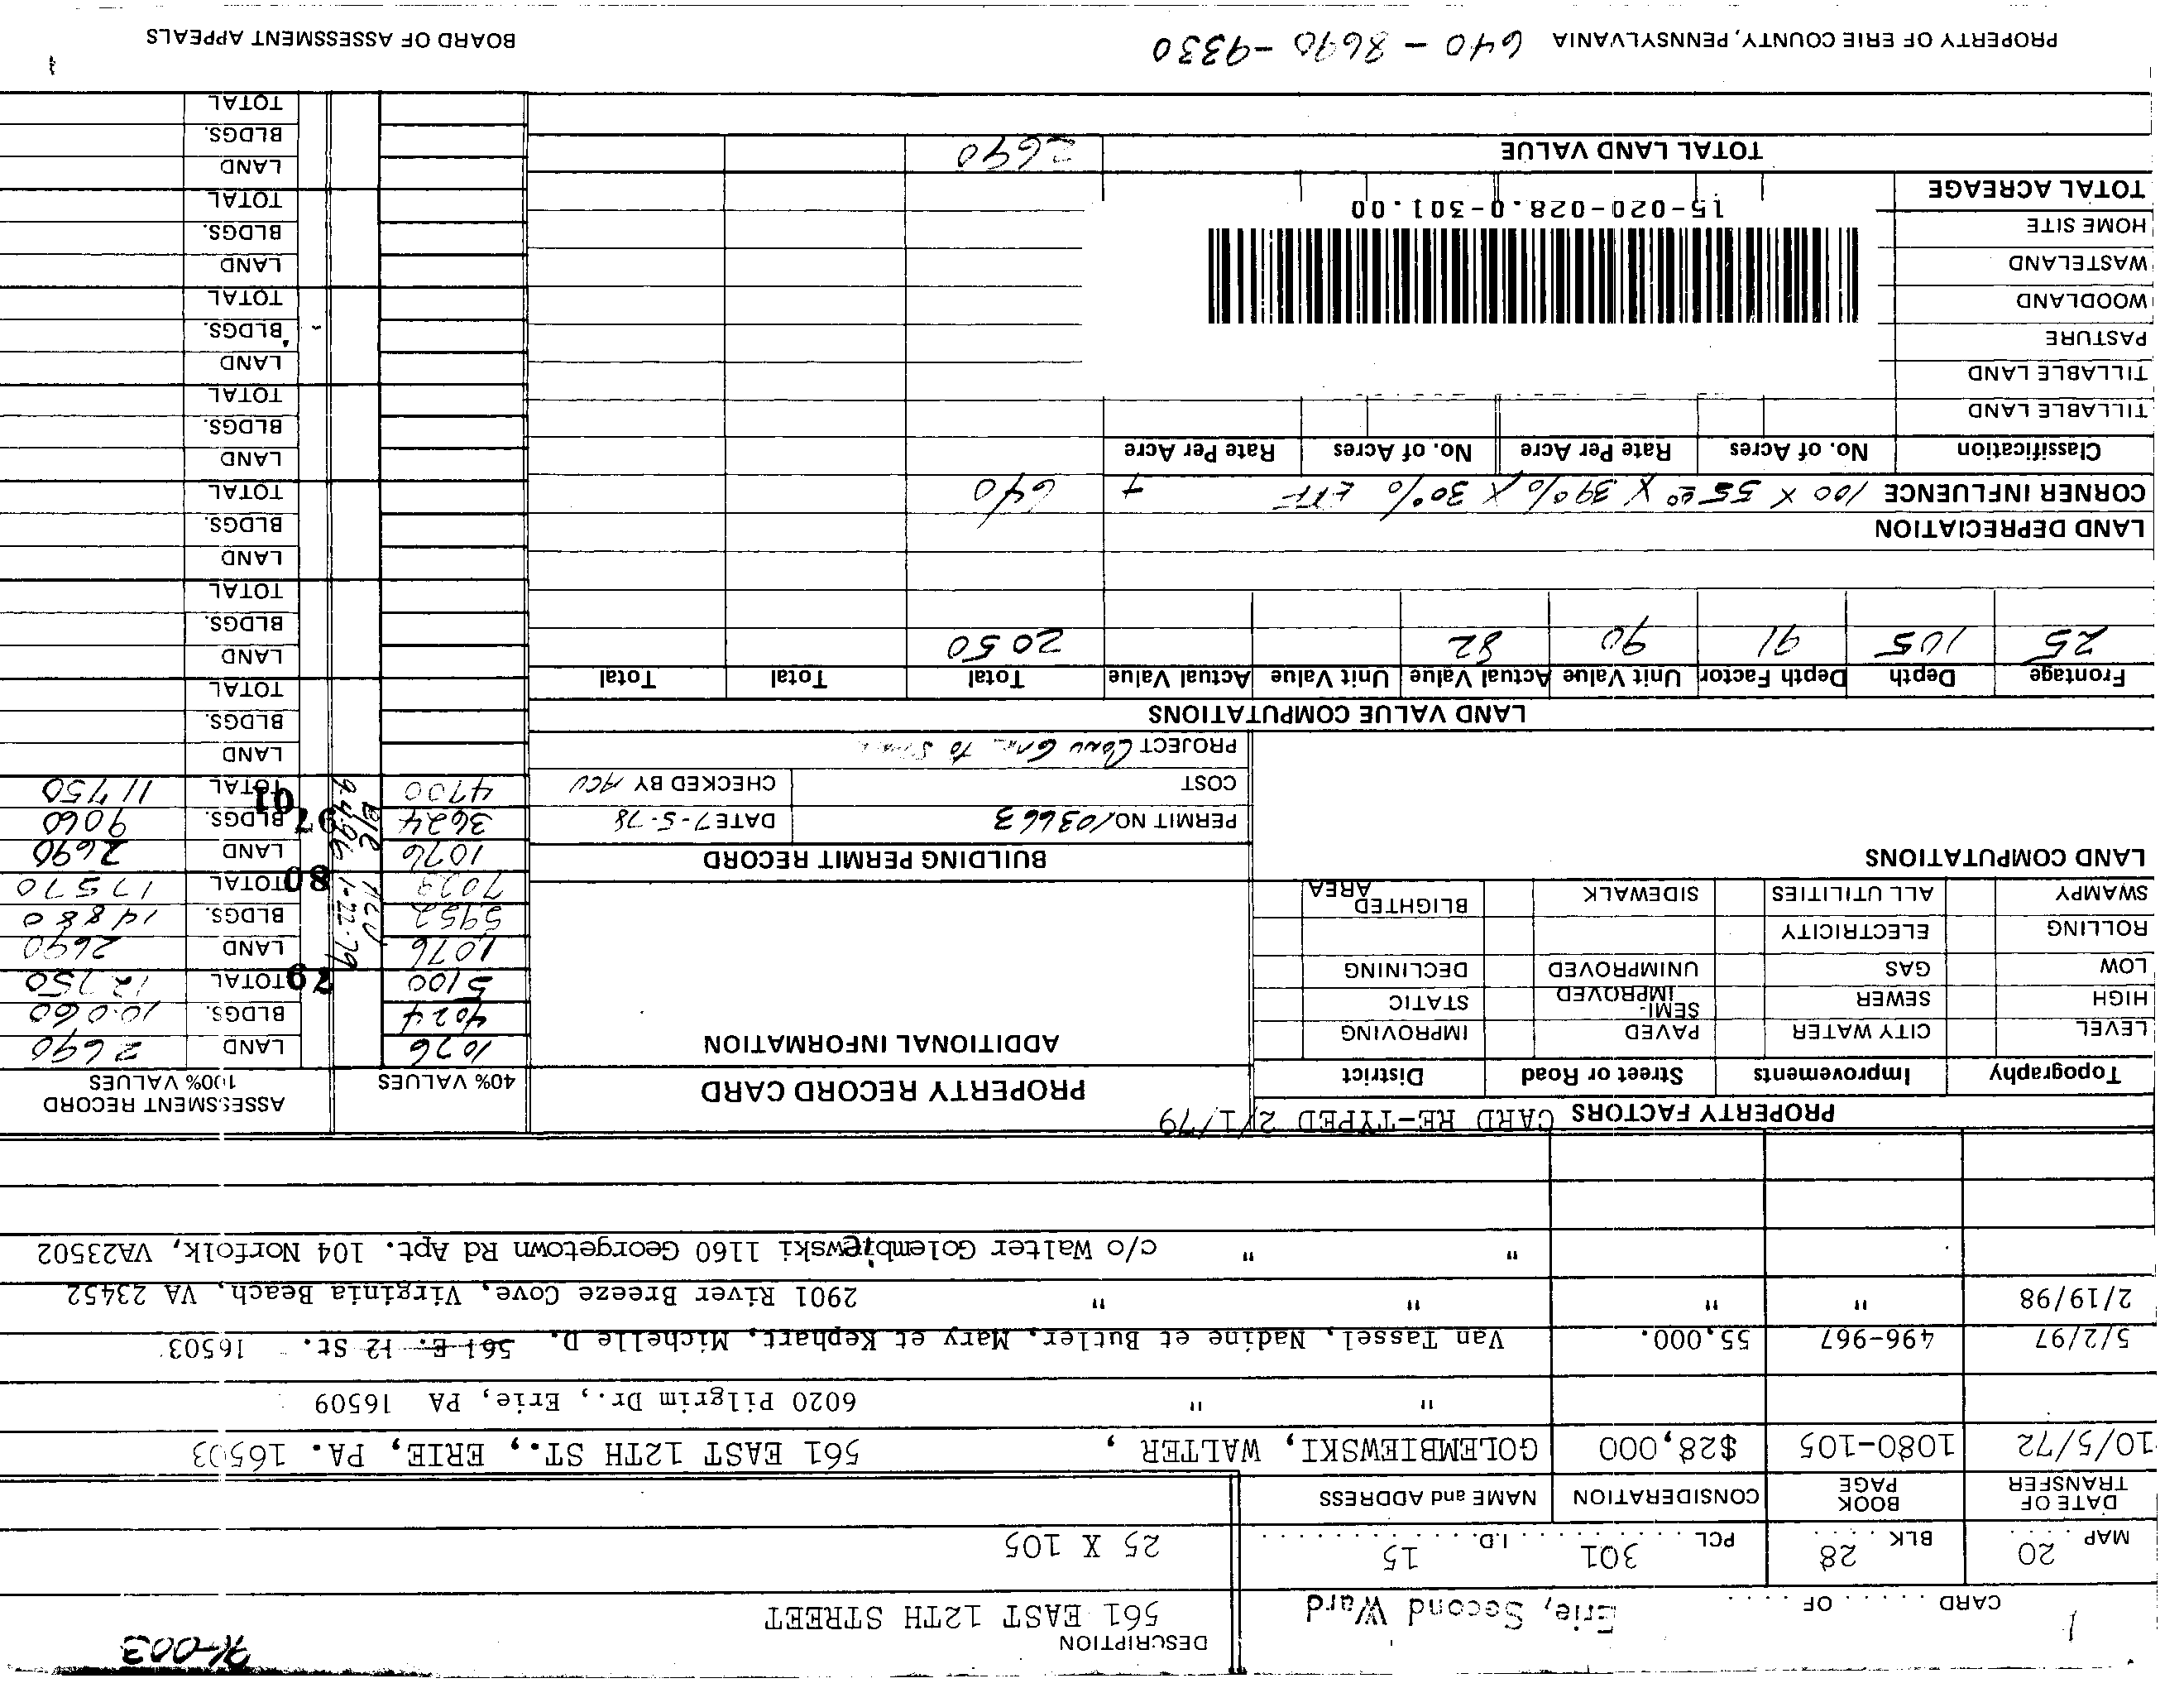 71-003
1
CARD ..... OF .....
Erie, Second Ward
DESCRIPTION
561 EAST 12TH STREET
MAP 20 BLK 28 PCL 301 I.D. 15
25 X 105
DATE OF TRANSFER BOOK PAGE CONSIDERATION NAME and ADDRESS
10/5/72 1080-105 $28,000 GOLEMBIEWSKI, WALTER , 561 EAST 12TH ST., ERIE, PA. 16503
" " 6020 Pilgrim Dr., Erie, PA 16509
5/2/97 496-967 55,000. Van Tassel, Nadine et Butler, Mary et Kephart, Michelle D. 561 E. 12 St. 16503
2/19/98 " " " " 2901 River Breeze Cove, Virginia Beach, VA 23452
" " c/o Walter Golembiewski 1160 Georgetown Rd Apt. 104 Norfolk, VA23502
PROPERTY FACTORS CARD RE-TYPED 2/1/79
Topography Improvements Street or Road District
LEVEL CITY WATER PAVED IMPROVING
HIGH SEWER SEMI-IMPROVED STATIC
LOW GAS UNIMPROVED DECLINING
ROLLING ELECTRICITY
SWAMPY ALL UTILITIES SIDEWALK BLIGHTED AREA
LAND COMPUTATIONS
PROPERTY RECORD CARD
ADDITIONAL INFORMATION
BUILDING PERMIT RECORD
PERMIT NO. 103663 DATE 7-5-78
COST CHECKED BY ACU
PROJECT Conv Gar. to
40% VALUES ASSESSMENT RECORD 100% VALUES
1076 LAND 2690
4024 BLDGS. 10.060
5100 79 TOTAL 12.750
1,076 LAND 2690
5952 BLDGS. 14880
7029 80 TOTAL 17570
1-22-79
1076 LAND 2690
3624 BLDGS. 9060
4700 97 01 TOTAL 11750
9-4-96
LAND
BLDGS.
TOTAL
LAND
BLDGS.
TOTAL
LAND
BLDGS.
TOTAL
LAND
BLDGS.
TOTAL
LAND
BLDGS.
TOTAL
LAND
BLDGS.
TOTAL
LAND
BLDGS.
TOTAL
LAND VALUE COMPUTATIONS
Frontage Depth Depth Factor Unit Value Actual Value Unit Value Actual Value Total Total Total
25 105 91 90 82 2050
LAND DEPRECIATION
CORNER INFLUENCE 100 X 55 00 X 39% X 30% EFF + 640
Classification No. of Acres Rate Per Acre No. of Acres Rate Per Acre
TILLABLE LAND
TILLABLE LAND
PASTURE
WOODLAND
WASTELAND
HOME SITE
TOTAL ACREAGE
15-020-028.0-301.00
TOTAL LAND VALUE 2690
PROPERTY OF ERIE COUNTY, PENNSYLVANIA 640-8690-9330
BOARD OF ASSESSMENT APPEALS